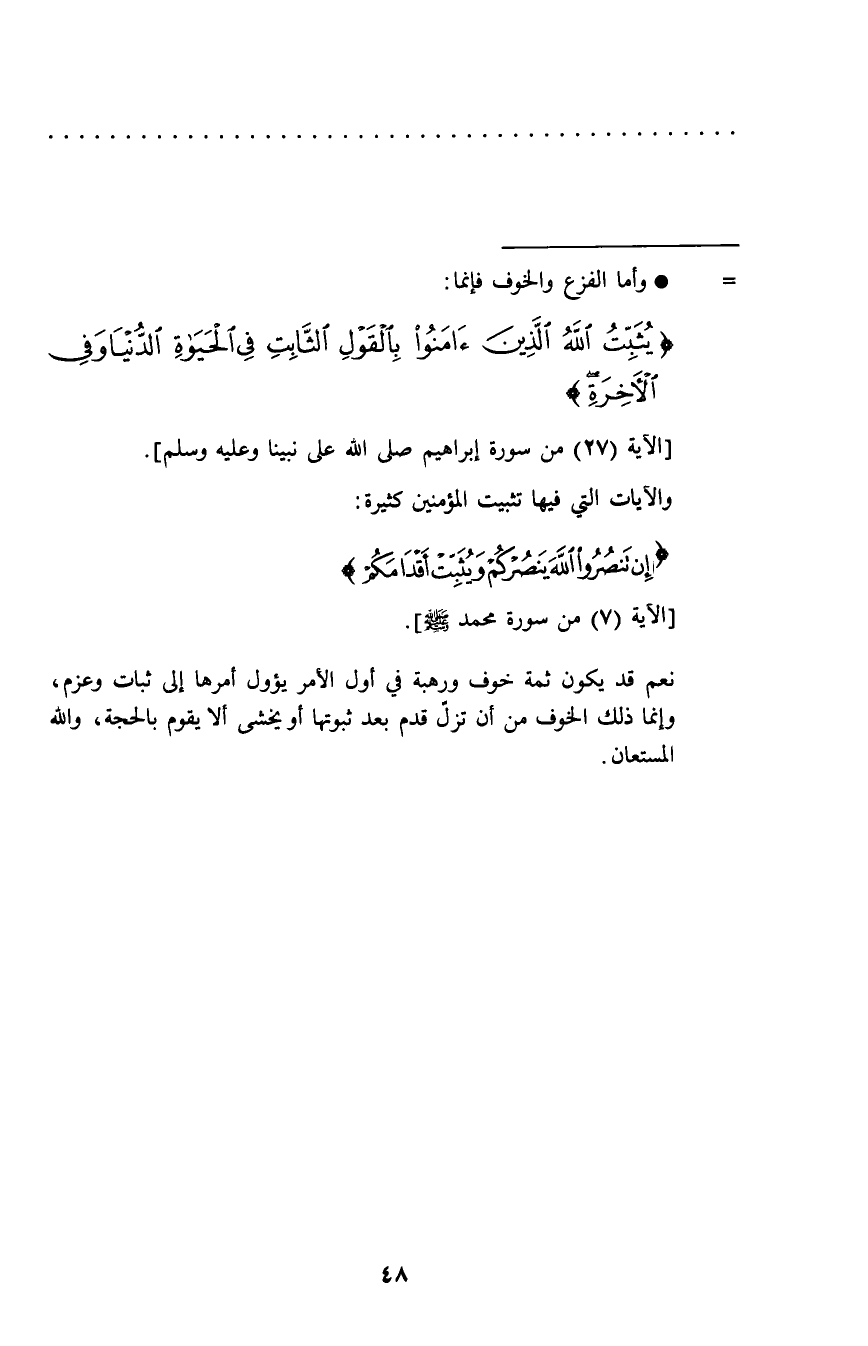 . . . . . . . . . . . . . . . . . . . . . . . . . . . . . . . . . . . . . . . . . . . . .
= ● وأما الفزع والخوف فإنما:
﴿ يُثَبِّتُ ٱللَّهُ ٱلَّذِينَ ءَامَنُوا۟ بِٱلْقَوْلِ ٱلثَّابِتِ فِى ٱلْحَيَوٰةِ ٱلدُّنْيَا وَفِى
ٱلْأَخِرَةِ ۖ ﴾
[الآية (٢٧) من سورة إبراهيم صلى الله على نبينا وعليه وسلم].
والآيات التي فيها تثبيت المؤمنين كثيرة:
﴿ إِن تَنصُرُوا۟ ٱللَّهَ يَنصُرْكُمْ وَيُثَبِّتْ أَقْدَامَكُمْ ﴾
[الآية (٧) من سورة محمد ﷺ].
نعم قد يكون ثمة خوف ورهبة في أول الأمر يؤول أمرها إلى ثبات وعزم،
وإنما ذلك الخوف من أن تزلّ قدم بعد ثبوتها أو يخشى ألا يقوم بالحجة، والله
المستعان.
٤٨